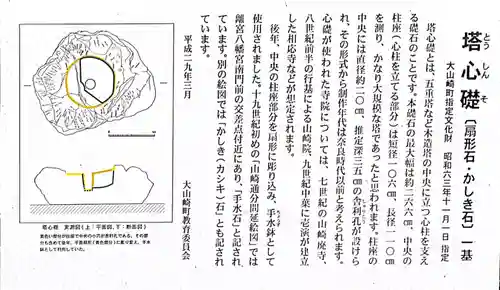 塔心礎〔扇形石・かしき石〕一基
とうしんそ
大山崎町指定文化財 昭和六三年十一月一日指定
塔心礎とは、五重塔など木造塔の中央に立つ心柱を支え
る礎石のことです。本礎石の最大幅は約二六六㎝、中央の
柱座（心柱を立てる部分）は短径一〇六㎝、長径一一〇㎝
を測り、かなり大規模な塔であったと思われます。柱座の
中央には直径約二〇㎝、推定深三五㎝の舎利孔が設けら
れ、その形式から制作年代は奈良時代以前と考えられます。
心礎が使われた寺院については、七世紀の山崎廃寺、
八世紀前半の行基による山崎院、九世紀中葉に壱演が建立
した相応寺などが想定されます。
後年、中央の柱座部分を扇形に彫り込み、手水鉢として
使用されました。十九世紀初めの「山崎通分間延絵図」では
離宮八幡宮南門前の交差点付近にあり、「手水石」と記され
ています。別の絵図では「かしき（カシキ）石」とも記され
ています。
平成二九年三月
大山崎町教育委員会
塔心礎 実測図（上：平面図、下：断面図）